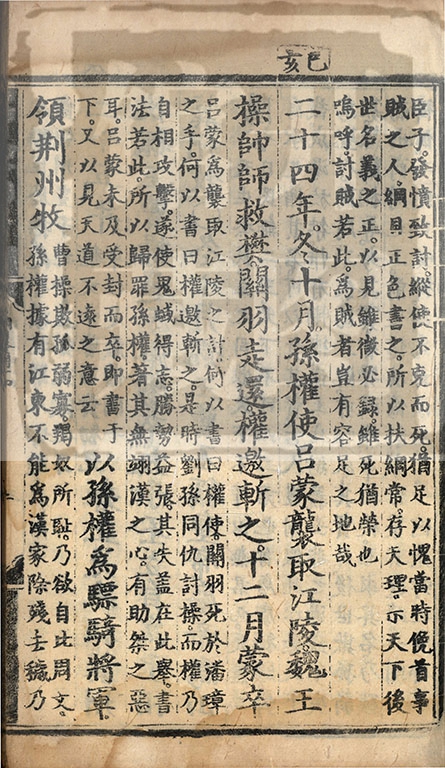 己亥
臣子。發憤致討。縱使不克而死。猶足以愧當時俛首事
賊之人。綱目正色書之。所以扶綱常。存天理。示天下後
世名義之正。以見雖微必録。雖死猶榮也
嗚呼。討賊若此。為賊者豈有容足之地哉
二十四年。冬十月。孫權使呂蒙襲取江陵。魏王
操帥師救樊。關羽走還。權邀斬之。十二月蒙卒
呂蒙爲襲取江陵之計。何以書曰權使。關羽死於潘璋
之手。何以書曰權邀斬之。是時劉孫同仇討操。而權乃
自相攻擊。遂使鬼蜮得志。勝勢益張。其失蓋在此舉。書
法若此。所以歸罪孫權。著其無翊漢之心。有助桀之惡
耳。呂蒙未及受封而卒。即書于
下。又以見天道不遠之意云
以孫權爲驃騎將軍。
領荆州牧
曹操欺孤弱寡。羯奴所恥。乃欲自比周文。
孫權據有江東不能爲漢家除殘去穢乃